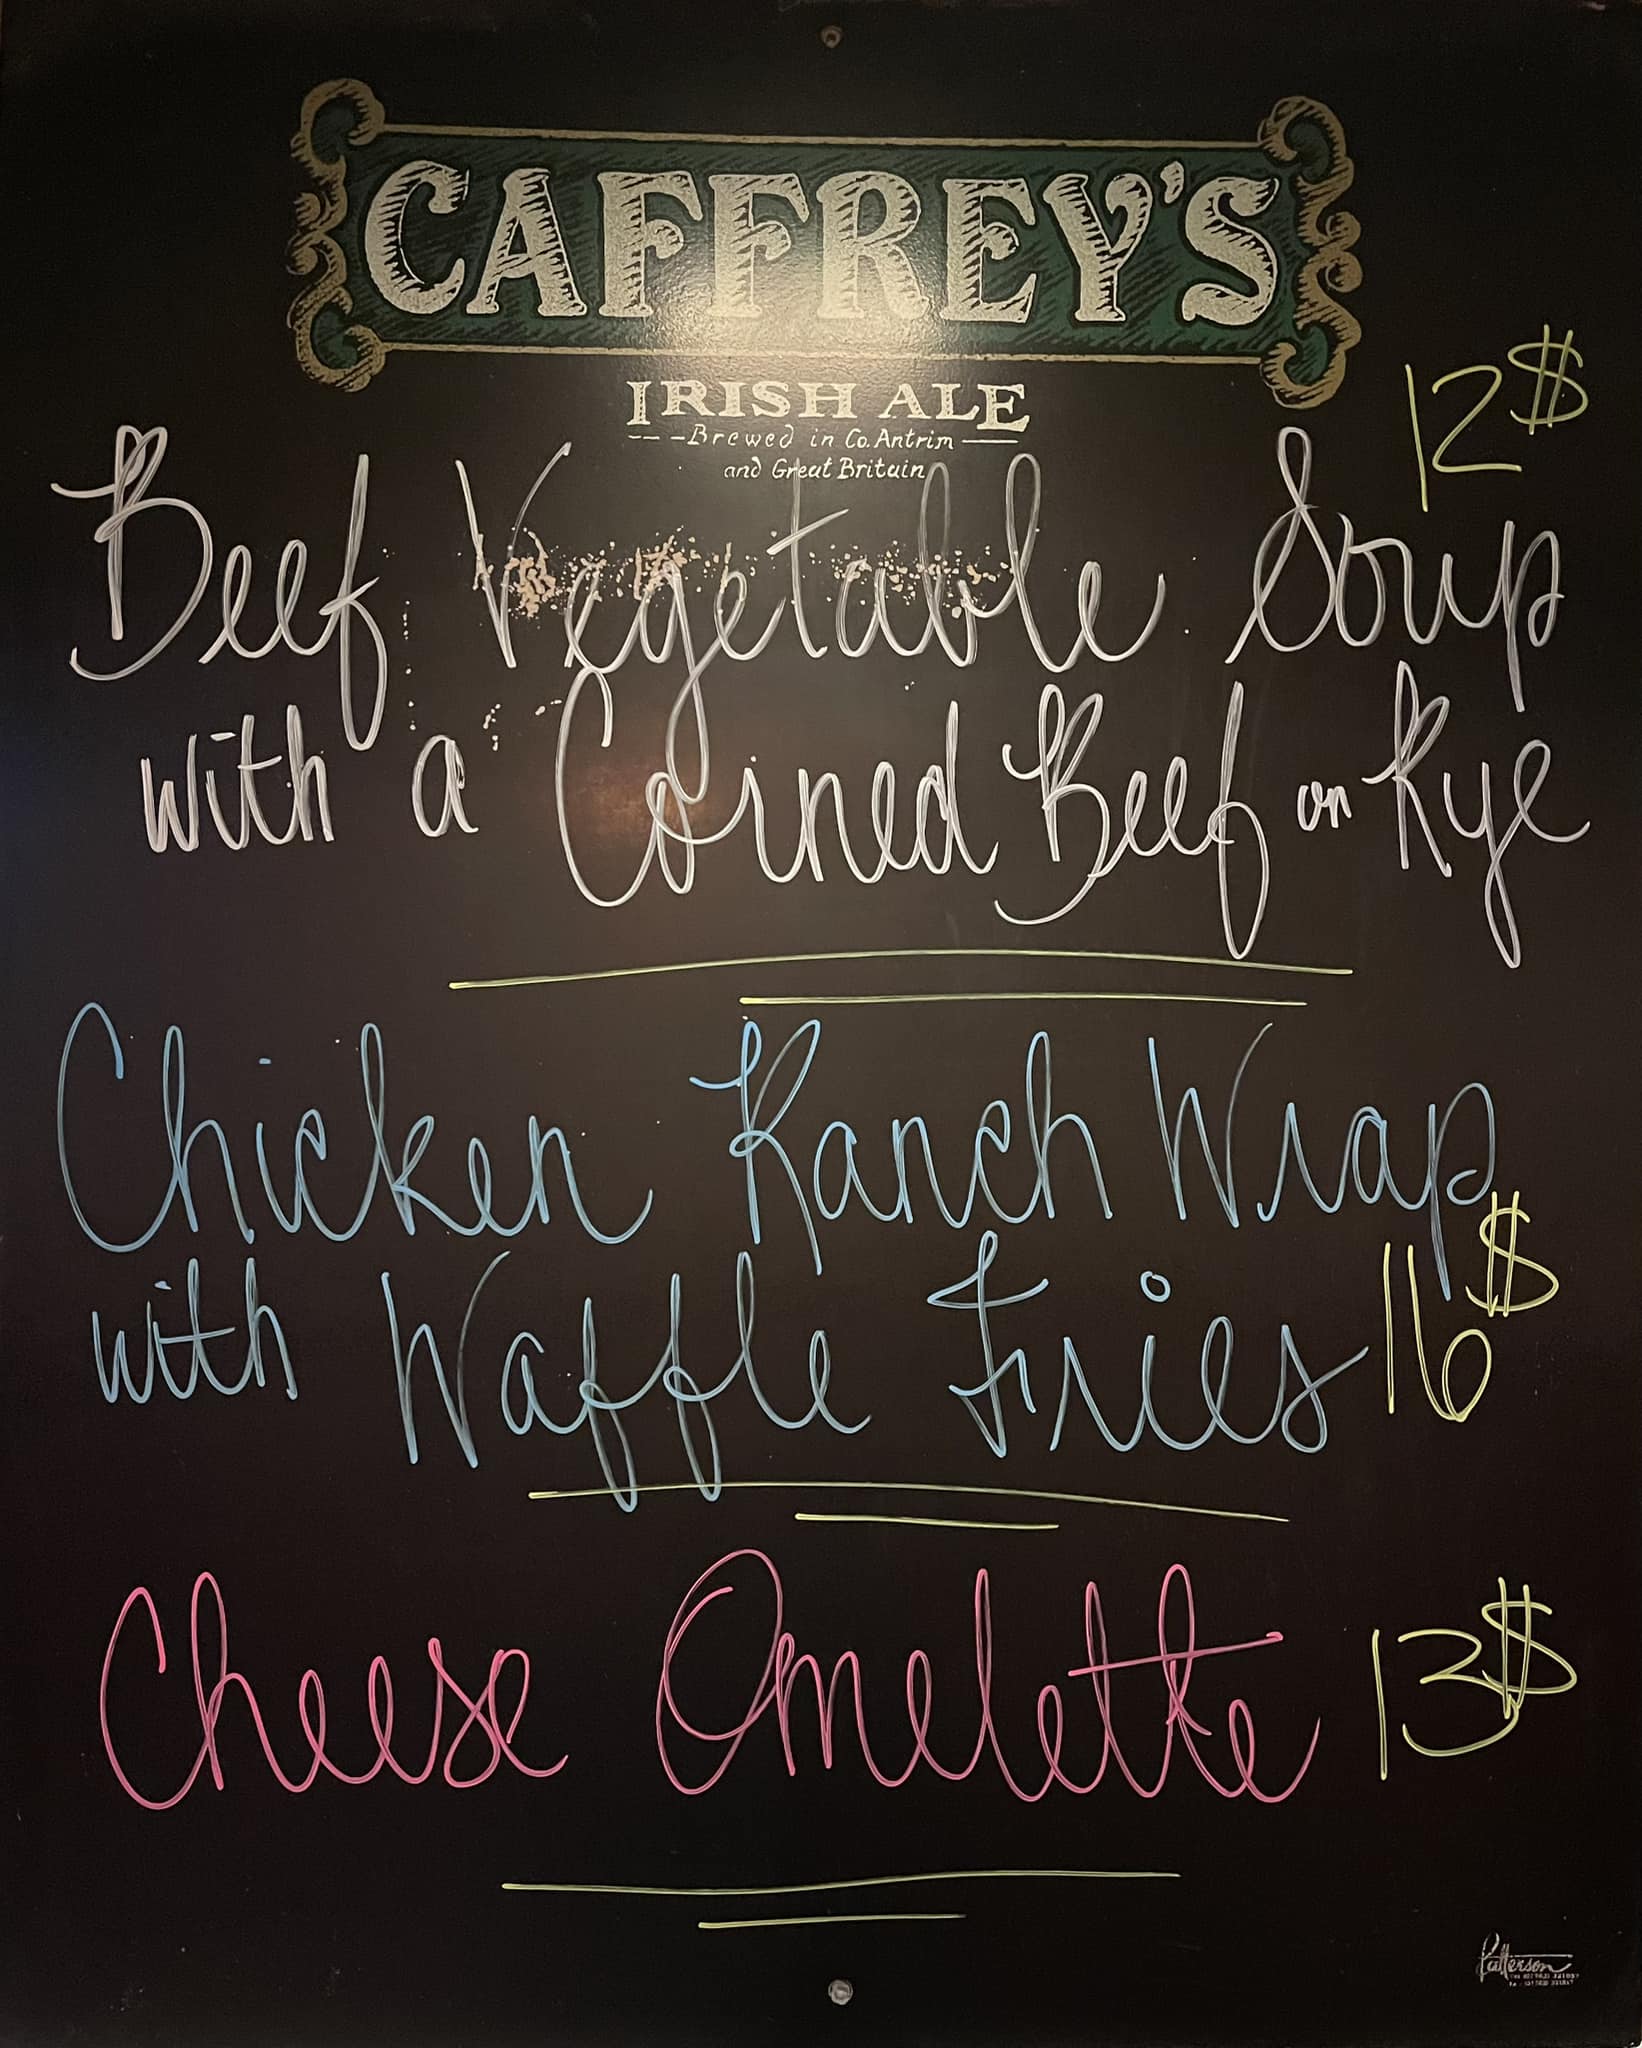 CAFFREY'S
IRISH ALE
Brewed in Co. Antrim
and Great Britain
12$
Beef Vegetable Soup
with a Corned Beef on Rye
Chicken Ranch Wrap
with Waffle Fries 16$
Cheese Omelette 13$
Patterson